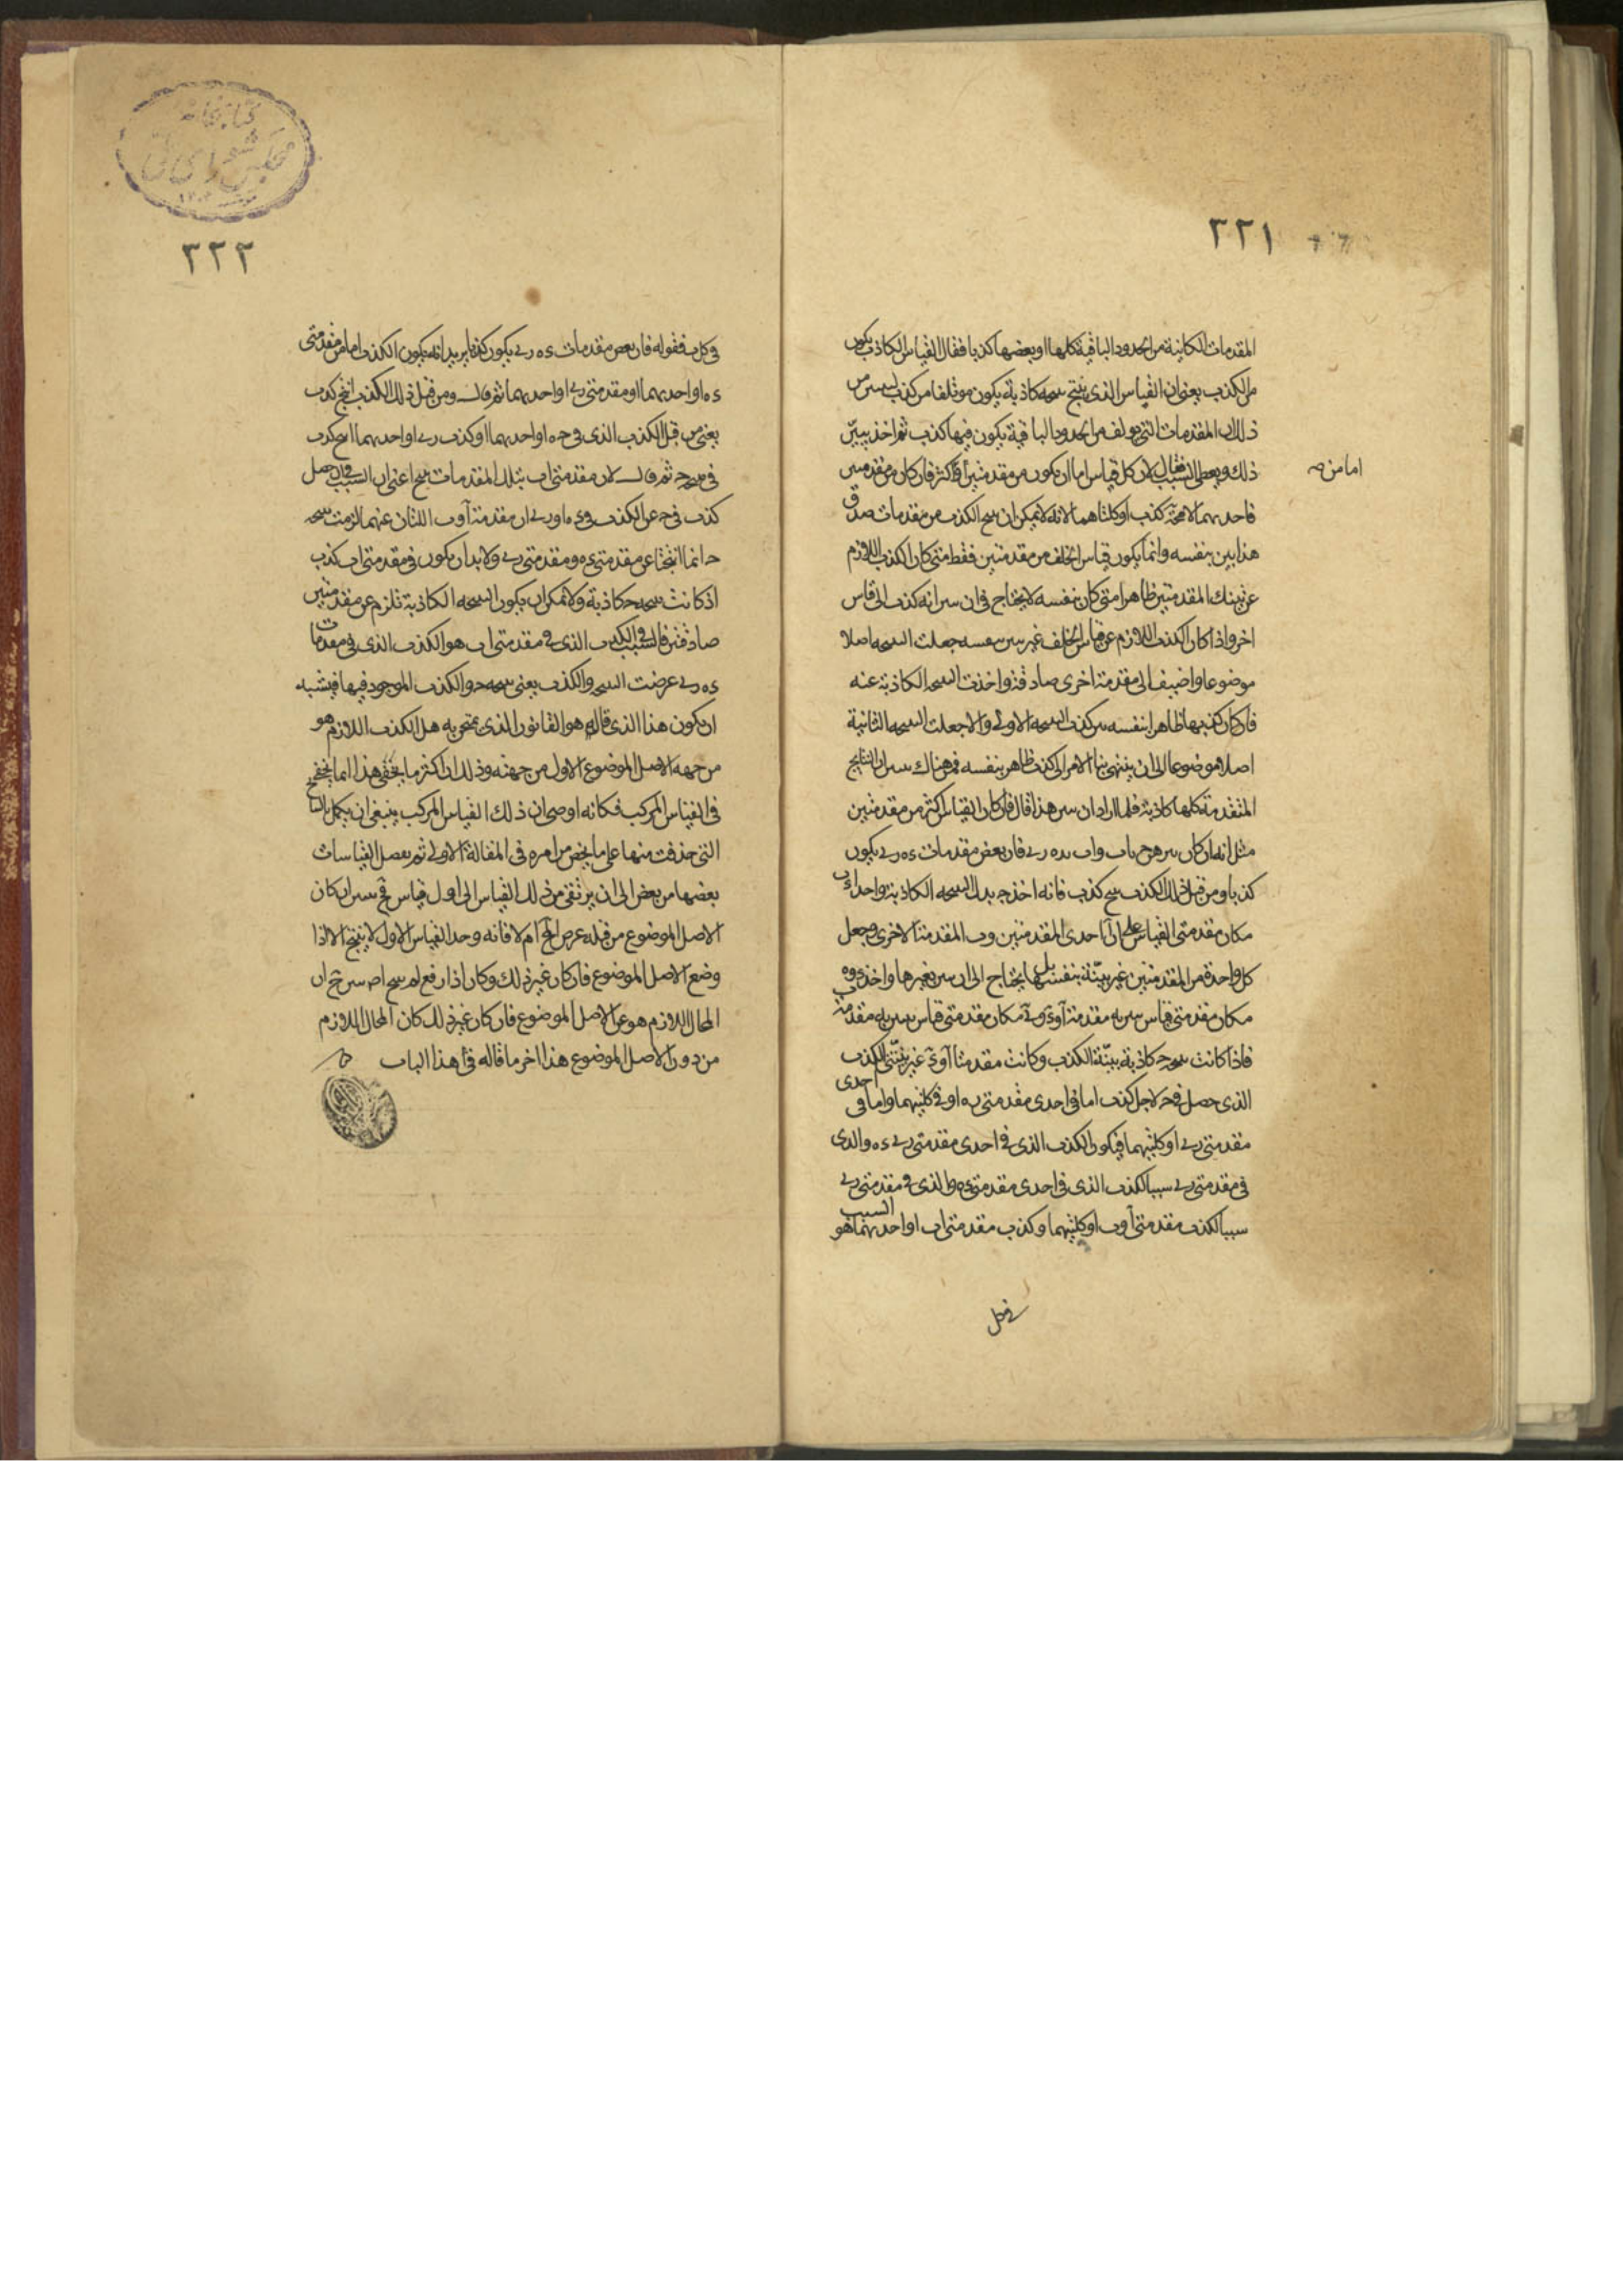 ٢٢١
المقدمات الكاينة من الحدود الباقية كلها او بعضها كذبا فقال القياس الكاذب يكون
من الكذب يعنى ان القياس الذى ينتج نتيجة كاذبة يكون مؤتلفا من كذب ليس من
ذلك المقدمات التى تؤلف من الحدود الباقية يكون فيها كذب ثم اخذ يبيّن
ذلك ويعطى السبب فقال لان كل قياس اما ان يكون من مقدمتين او اكثر فان كان من مقدمتين
اما من
فاحديهما لا محة كذب او كلتاهما لانه لا يمكن ان ينتج الكذب من مقدمات صدق
هذا بين بنفسه وانما يكون قياس الخلف من مقدمتين فقط متى كان الكذب اللازم
عن تينك المقدمتين ظاهرا متى كان بنفسه لا يحتاج فى ان يبين انه كذب الى قياس
اخر واذا كان الكذب اللازم عن قياس الخلف غير بين بنفسه جعلت النتيجة اصلا
موضوعا واضيف الى مقدمة اخرى صادقة واخذت النتيجة الكاذبة عنه
فان كان كذبها ظاهرا بنفسه بين كذب النتيجة الاولى والا جعلت النتيجة الثانية
اصلا موضوعا الى ان ينتهى بنا الامر الى كذب ظاهر بنفسه فمن هناك يبين ان النتايج
المتقدمة كلها كاذبة فلما اراد ان يبين هذا قال فان كان القياس اكثر من مقدمتين
مثل انه ان كان يبرهن ج باب واب بده رے فان بعض مقدمات ده رے يكون
كذبا ومن قبل ذلك الكذب ينتج كذب فانه اخذ ج بدل النتيجة الكاذبة واحد اوب
مكان مقدمتى القياس على ان آ احدى المقدمتين وب المقدمة الاخرى وجعل
كل واحدة من المقدمتين غير بيّنة بنفسها بل يحتاج الى ان يبين بغيرها واخذ ء وه
مكان مقدمتى قياس يبين به مقدمة آ و رے مكان مقدمتى قياس يبين به مقدمة ب
فاذا كانت نتيجة ج كاذبة بيّنة الكذب وكانت مقدمتا آ و ب غير بيّنتى الكذب
الذى حصل فى ج لاجل كذب اما فى احدى مقدمتى ء ه او فى كلتيهما واما فى احدى
مقدمتى رے او كلتيهما فيكون الكذب الذى فى احدى مقدمتى رے ء ه والذى
فى مقدمتى رے سببا لكذب الذى فى احدى مقدمتى ء ه والذى فى مقدمتى رے
سببا لكذب مقدمتى آ وب او كلتيهما وكذب مقدمتى اب او احديهما هو السبب
فى كل
٢٢٢
فى كل ب فقوله فان بعض مقدمات ء ه رے يكون كذبا يريد انه يكون الكذب اما من مقدمتى
ء ه او احديهما او مقدمتى رے او احديهما ثم قال ومن قبل ذلك الكذب انتج كذب
يعنى من قبل الكذب الذى فى ء ه او احديهما او كذب رے او احديهما انتج كذب
فى نتيجة ج ثم قال لان مقدمتى اب بتلك المقدمات ينتج اعنى ان السبب فى ان حصل
كذب فى ج عن الكذب فى ء ه او رے ان مقدمة آ وب اللتان عنهما لزمت نتيجة
ج انما انتجتا عن مقدمتى ء ه ومقدمتى رے ولا بد ان يكون فى مقدمتى اب كذب
اذ كانت نتيجة ج كاذبة ولا يمكن ان يكون النتيجة الكاذبة تلزم عن مقدمتين
صادقتين فالسبب فى الكذب الذى فى مقدمتى اب هو الكذب الذى فى مقدمات
ء ه رے عرضت النتيجة والكذب يعنى نتيجة ج والكذب الموجود فيها فيشبه
ان يكون هذا الذى قاله هو القانون الذى يمتحن به هل الكذب اللازم هو
من جهة الاصل الموضوع الاول من جهته وذلك ان اكثر ما يخفى هذا انما يخفى
فى القياس المركب فكانه اوصى ان ذلك القياس المركب ينبغى ان يكمل بالنتايج
التى حذفت منها على ما لخص من امره فى المقالة الاولى ثم يفصل القياسات
بعضها من بعض الى ان يرتقى من ذلك القياس الى اول قياس فح يبين ان كان
الاصل الموضوع من قبله عرض المح ام لا فانه وجد القياس الاول لا ينتج الا اذا
وضع الاصل الموضوع فان كان غير ذلك وكان اذا رفع لم ينتج اص يبين ح ان
المحال اللازم هو عن الاصل الموضوع فان كان غير ذلك كان المحال اللازم
من دون الاصل الموضوع هذا اخر ما قاله فى هذا الباب
كتابخانه
مجلس شوراى ملى